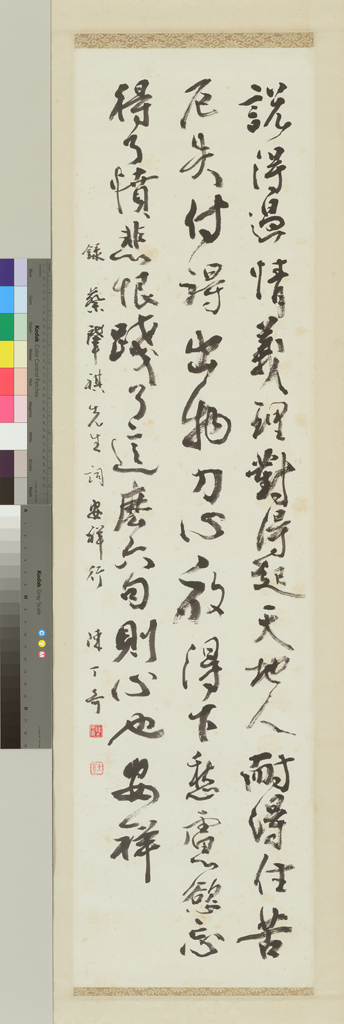 說得過情義理對得起天地人耐得住苦
厄失付得出物力心放得下愁慮慾忘
得了憤悲恨踐了這麼六句則心也安祥
錄蔡肇祺先生詞安祥行 陳丁奇
Kodak Color Control Patches
Kodak Gray Scale